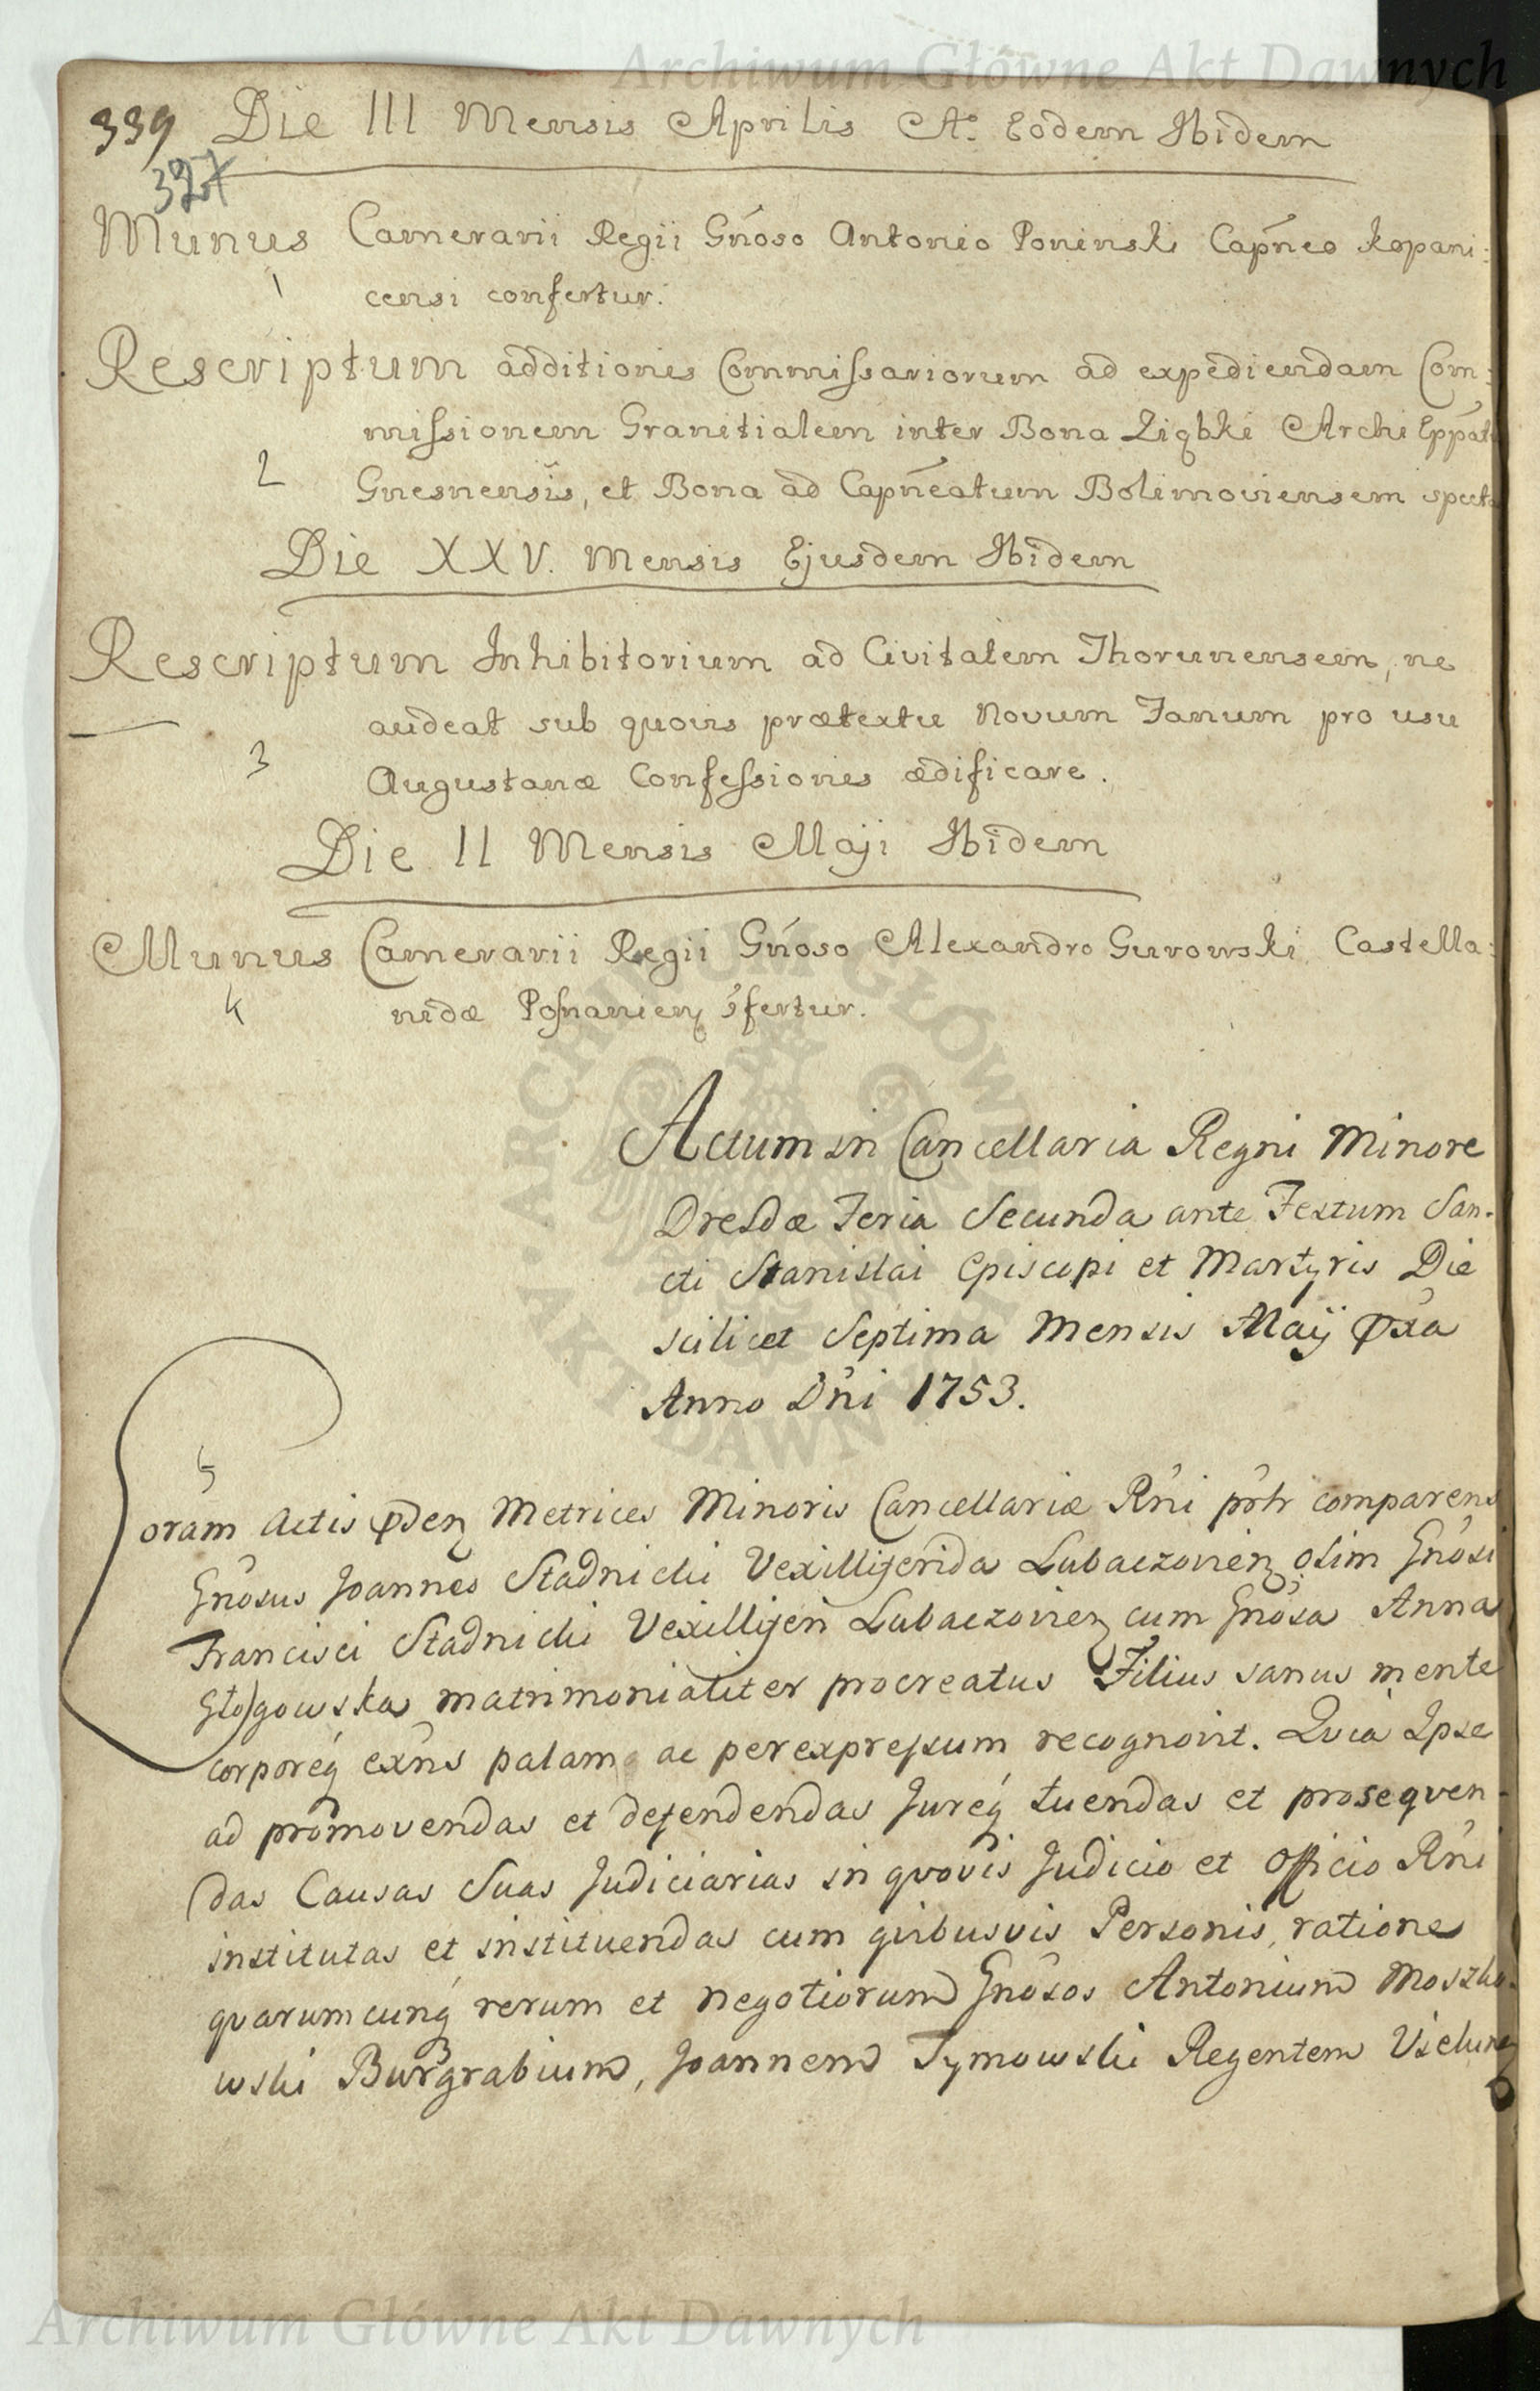 Archiwum Główne Akt Dawnych
339 Die III Mensis Aprilis Aº Eodem Ibidem
327
Munus Camerarii Regii Gn̄oso Antonio Poninski Capn̄eo Kopani:
1
censi confertur.
Rescriptum additionis Commissariorum ad expediendam Com:
missionem Granitialem inter Bona Ziąbki Archi Eppāt
2 Gnesnensis, et Bona ad Capn̄eatum Bolimoviensem spect
Die XXV. Mensis Ejusdem Ibidem
Rescriptum Inhibitorium ad Civitatem Thorunensem, ne
audeat sub quovis prætextu Novum Fanum pro usu
3
Augustanæ Confessionis ædificare.
Die II Mensis Maji Ibidem
Munus Camerarii Regii Gn̄oso Alexandro Gurowski Castella:
4 nidæ Posnanien ɔ̄fertur.
Actum in Cancellaria Regni Minore
Dresdæ Feria Secunda ante Festum San-
cti Stanislai Episcopi et Martyris Die
scilicet Septima Mensis Maij
Anno Dn̄i 1753.
5
Coram Actis Metrices Minoris Cancellariæ Rn̄i comparens
Gn̄osus Joannes Stadnicki Vexilligerida Lubaczovien olim Gn̄osi
Francisci Stadnicki Vexilligeri Lubaczovien cum Gn̄osa Anna
Głogowska matrimonialiter procreatus Filius sanus mente
corporeq̄ exn̄s palam ac per expressum recognovit. Quia Ipse
ad promovendas et defendendas Jureq̄ tuendas et proseqven-
das Causas Suas Judiciarias in qvovis Judicio et Officio Rn̄i
institutas et instituendas cum qvibusvis Personis, ratione
qvarumcunq̄ rerum et negotiorum Gn̄osos Antonium Moszko-
wski Burgrabium, Joannem Tymowski Regentem
Archiwum Główne Akt Dawnych